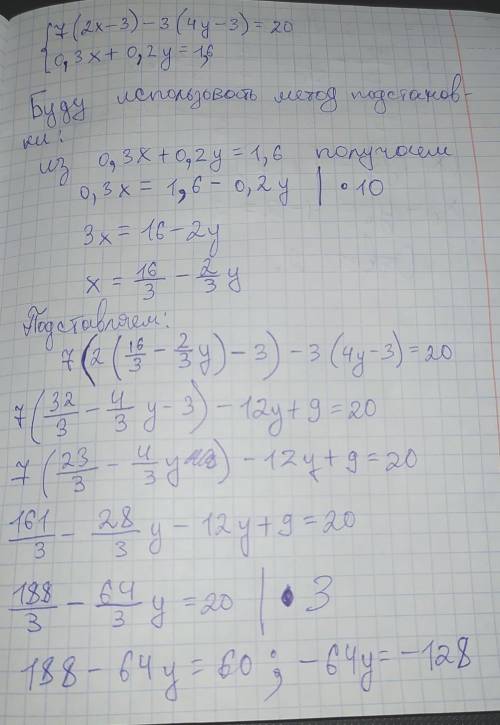 {7(2x-3)-3(4y-3)=20
{0,3x+0,2y=1,6
Буду использовать метод подстанов-
ки:
из 0,3x+0,2y=1,6 получаем
0,3x=1,6-0,2y |·10
3x=16-2y
x=16/3-2/3y
Подставляем:
7(2(16/3-2/3y)-3)-3(4y-3)=20
7(32/3-4/3y-3)-12y+9=20
7(23/3-4/3y)-12y+9=20
161/3-28/3y-12y+9=20
188/3-64/3y=20 |·3
188-64y=60; -64y=-128